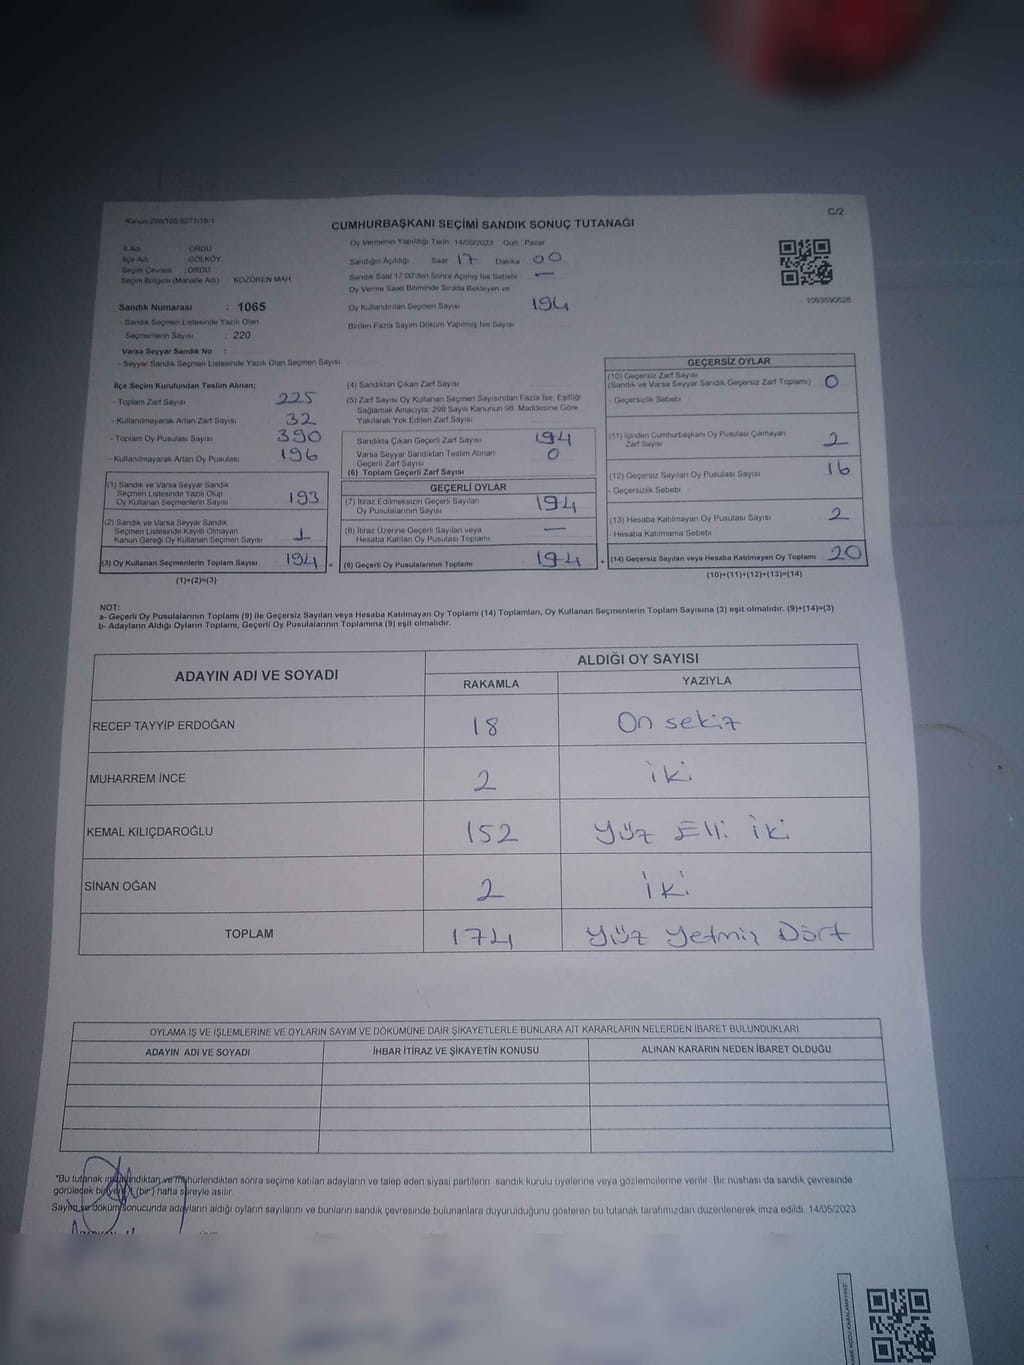 Kanun 298/105,6271/19/1
C/2
CUMHURBAŞKANI SEÇİMİ SANDIK SONUÇ TUTANAĞI
İl Adı : ORDU
İlçe Adı : GÖLKÖY
Seçim Çevresi : ORDU
Seçim Bölgesi (Mahalle Adı) KOZÖREN MAH
Sandık Numarası : 1065
- Sandık Seçmen Listesinde Yazılı Olan
Seçmenlerin Sayısı : 220
Varsa Seyyar Sandık No :
- Seyyar Sandık Seçmen Listesinde Yazılı Olan Seçmen Sayısı
Oy Vermenin Yapıldığı Tarih 14/05/2023 Gün Pazar
Sandığın Açıldığı Saat 17 Dakika 00
Sandık Saat 17:00'den Sonra Açılmış İse Sebebi : —
Oy Verme Saati Bitiminde Sırada Bekleyen ve
Oy Kullandırılan Seçmen Sayısı 194
Birden Fazla Sayım Döküm Yapılmış İse Sayısı
1093590628
İlçe Seçim Kurulundan Teslim Alınan;
- Toplam Zarf Sayısı 225
- Kullanılmayarak Artan Zarf Sayısı 32
- Toplam Oy Pusulası Sayısı 390
- Kullanılmayarak Artan Oy Pusulası 196
(1) Sandık ve Varsa Seyyar Sandık
Seçmen Listesinde Yazılı Olup
Oy Kullanan Seçmenlerin Sayısı 193
(2) Sandık ve Varsa Seyyar Sandık
Seçmen Listesinde Kayıtlı Olmayan
Kanun Gereği Oy Kullanan Seçmen Sayısı 1
(3) Oy Kullanan Seçmenlerin Toplam Sayısı 194 =
(1)+(2)=(3)
(4) Sandıktan Çıkan Zarf Sayısı
(5) Zarf Sayısı Oy Kullanan Seçmen Sayısından Fazla İse, Eşitliği
Sağlamak Amacıyla, 298 Sayılı Kanunun 98. Maddesine Göre
Yakılarak Yok Edilen Zarf Sayısı
Sandıkta Çıkan Geçerli Zarf Sayısı 194
Varsa Seyyar Sandıktan Teslim Alınan
Geçerli Zarf Sayısı 0
(6) Toplam Geçerli Zarf Sayısı
GEÇERLİ OYLAR
(7) İtiraz Edilmeksizin Geçerli Sayılan
Oy Pusulalarının Sayısı 194
(8) İtiraz Üzerine Geçerli Sayılan veya
Hesaba Katılan Oy Pusulası Toplamı —
(9) Geçerli Oy Pusulalarının Toplamı 194 +
GEÇERSİZ OYLAR
(10) Geçersiz Zarf Sayısı
(Sandık ve Varsa Seyyar Sandık Geçersiz Zarf Toplamı) 0
- Geçersizlik Sebebi
(11) İçinden Cumhurbaşkanı Oy Pusulası Çıkmayan
Zarf Sayısı 2
(12) Geçersiz Sayılan Oy Pusulası Sayısı 16
- Geçersizlik Sebebi
(13) Hesaba Katılmayan Oy Pusulası Sayısı 2
- Hesaba Katılmama Sebebi
(14) Geçersiz Sayılan veya Hesaba Katılmayan Oy Toplamı 20
(10)+(11)+(12)+(13)=(14)
NOT:
a- Geçerli Oy Pusulalarının Toplamı (9) ile Geçersiz Sayılan veya Hesaba Katılmayan Oy Toplamı (14) Toplamları, Oy Kullanan Seçmenlerin Toplam Sayısına (3) eşit olmalıdır. (9)+(14)=(3)
b- Adayların Aldığı Oyların Toplamı, Geçerli Oy Pusulalarının Toplamına (9) eşit olmalıdır.
ADAYIN ADI VE SOYADI
ALDIĞI OY SAYISI
RAKAMLA YAZIYLA
RECEP TAYYİP ERDOĞAN 18 On sekiz
MUHARREM İNCE 2 iki
KEMAL KILIÇDAROĞLU 152 Yüz Elli iki
SİNAN OĞAN 2 iki
TOPLAM 174 Yüz Yetmiş Dört
OYLAMA İŞ VE İŞLEMLERİNE VE OYLARIN SAYIM VE DÖKÜMÜNE DAİR ŞİKAYETLERLE BUNLARA AİT KARARLARIN NELERDEN İBARET BULUNDUKLARI
ADAYIN ADI VE SOYADI İHBAR İTİRAZ VE ŞİKAYETİN KONUSU ALINAN KARARIN NEDEN İBARET OLDUĞU
*Bu tutanak imzalandıktan ve mühürlendikten sonra seçime katılan adayların ve talep eden siyasi partilerin sandık kurulu üyelerine veya gözlemcilerine verilir. Bir nüshası da sandık çevresinde
görülecek bir yere 1 (bir) hafta süreyle asılır.
Sayım ve döküm sonucunda adayların aldığı oyların sayılarını ve bunların sandık çevresinde bulunanlara duyurulduğunu gösteren bu tutanak tarafımızdan düzenlenerek imza edildi. 14/05/2023